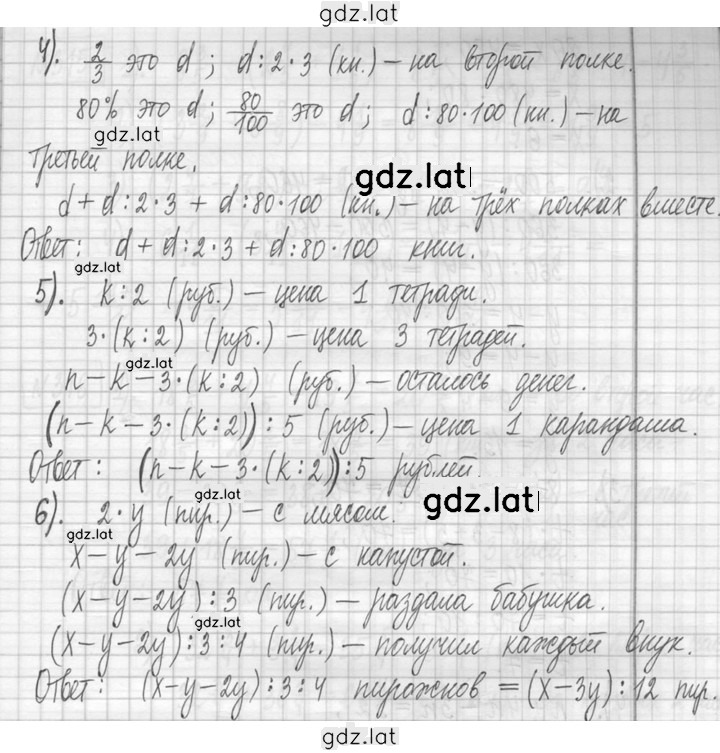 gdz.lat
4). 2/3 это d ; d:2·3 (кн.) – на второй полке.
80% это d ; 80/100 это d ; d:80·100 (кн.) – на
gdz.lat
третьей полке.
gdz.lat
d + d:2·3 + d:80·100 (кн.) – на трёх полках вместе.
Ответ: d + d:2·3 + d:80·100 книг.
gdz.lat
5). k:2 (руб.) – цена 1 тетради.
3·(k:2) (руб.) – цена 3 тетрадей.
gdz.lat
n – k – 3·(k:2) (руб.) – осталось денег.
(n – k – 3·(k:2)) : 5 (руб.) – цена 1 карандаша.
Ответ: (n – k – 3·(k:2)):5 рублей.
gdz.lat
gdz.lat
6). 2·y (пир.) – с мясом.
gdz.lat
x – y – 2y (пир.) – с капустой.
(x – y – 2y) : 3 (пир.) – раздала бабушка.
gdz.lat
(x – y – 2y) : 3 : 4 (пир.) – получил каждый внук.
Ответ: (x – y – 2y) : 3 : 4 пирожков = (x – 3y) : 12 пир.
gdz.lat
gdz.lat